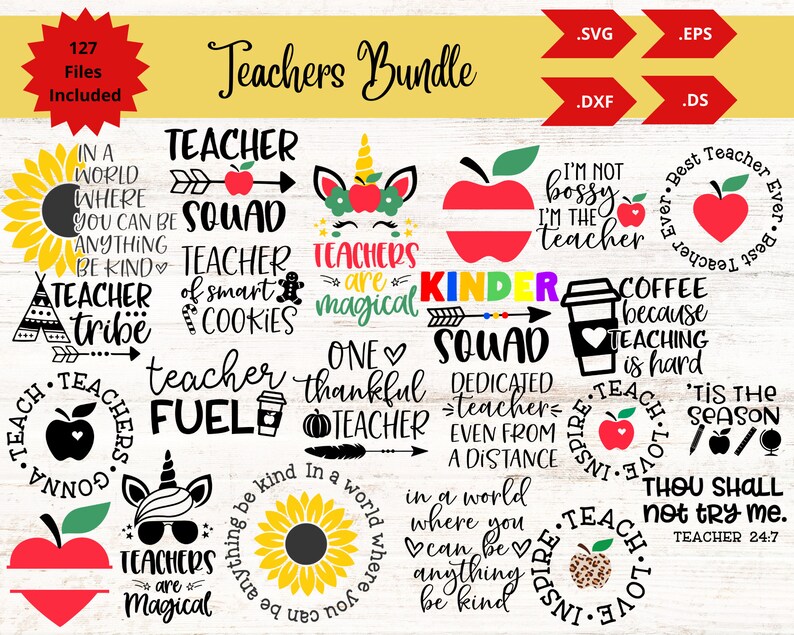 127
Files
Included
Teachers Bundle
.SVG
.EPS
.DXF
.DS
IN A
WORLD
WHERE
YOU CAN BE
ANYTHING
BE KIND
TEACHER
SQUAD
TEACHERS
are
magical
I'M NOT
bossy
I'M THE
teacher
Best Teacher Ever • Best Teacher Ever •
TEACHER
tribe
TEACHER
of smart
COOKIES
KINDER
SQUAD
COFFEE
because
TEACHING
is hard
TEACH • TEACHERS • GONNA •
teacher
FUEL
ONE
thankful
TEACHER
DEDICATED
teacher
EVEN FROM
A DISTANCE
INSPIRE • TEACH • LOVE •
'TIS THE
SEASON
TEACHERS
are
Magical
In a world where you can be anything be kind
in a world
where you
can be
anything
be kind
INSPIRE • TEACH • LOVE •
THOU SHALL
not TRY me.
TEACHER 24:7